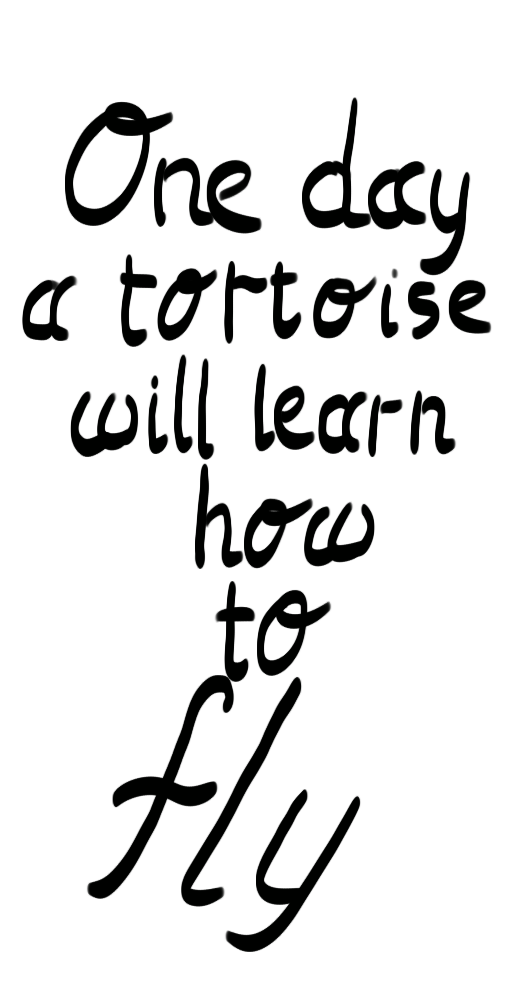 One day
a tortoise
will learn
how
to
fly